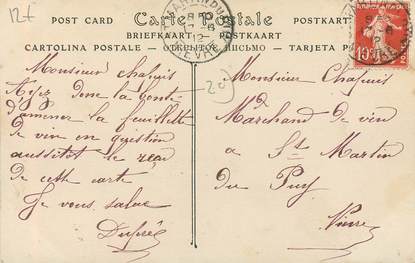 12f
POST CARD Carte Postale POSTKART
BRIEFKAART POSTKAART
CARTOLINA POSTALE - ОТКРЫТОЕ ПИСЬМО - TARJETA P
20
10
Monsieur chapuis
Ayez donc la bonté
d'amener la feuillette
de vin en question
aussitot le reçu
de cette carte
Je vous salue
Dupré
Monsieur Chapuis
Marchand de vin
a St Martin
du Puy
Nièvre